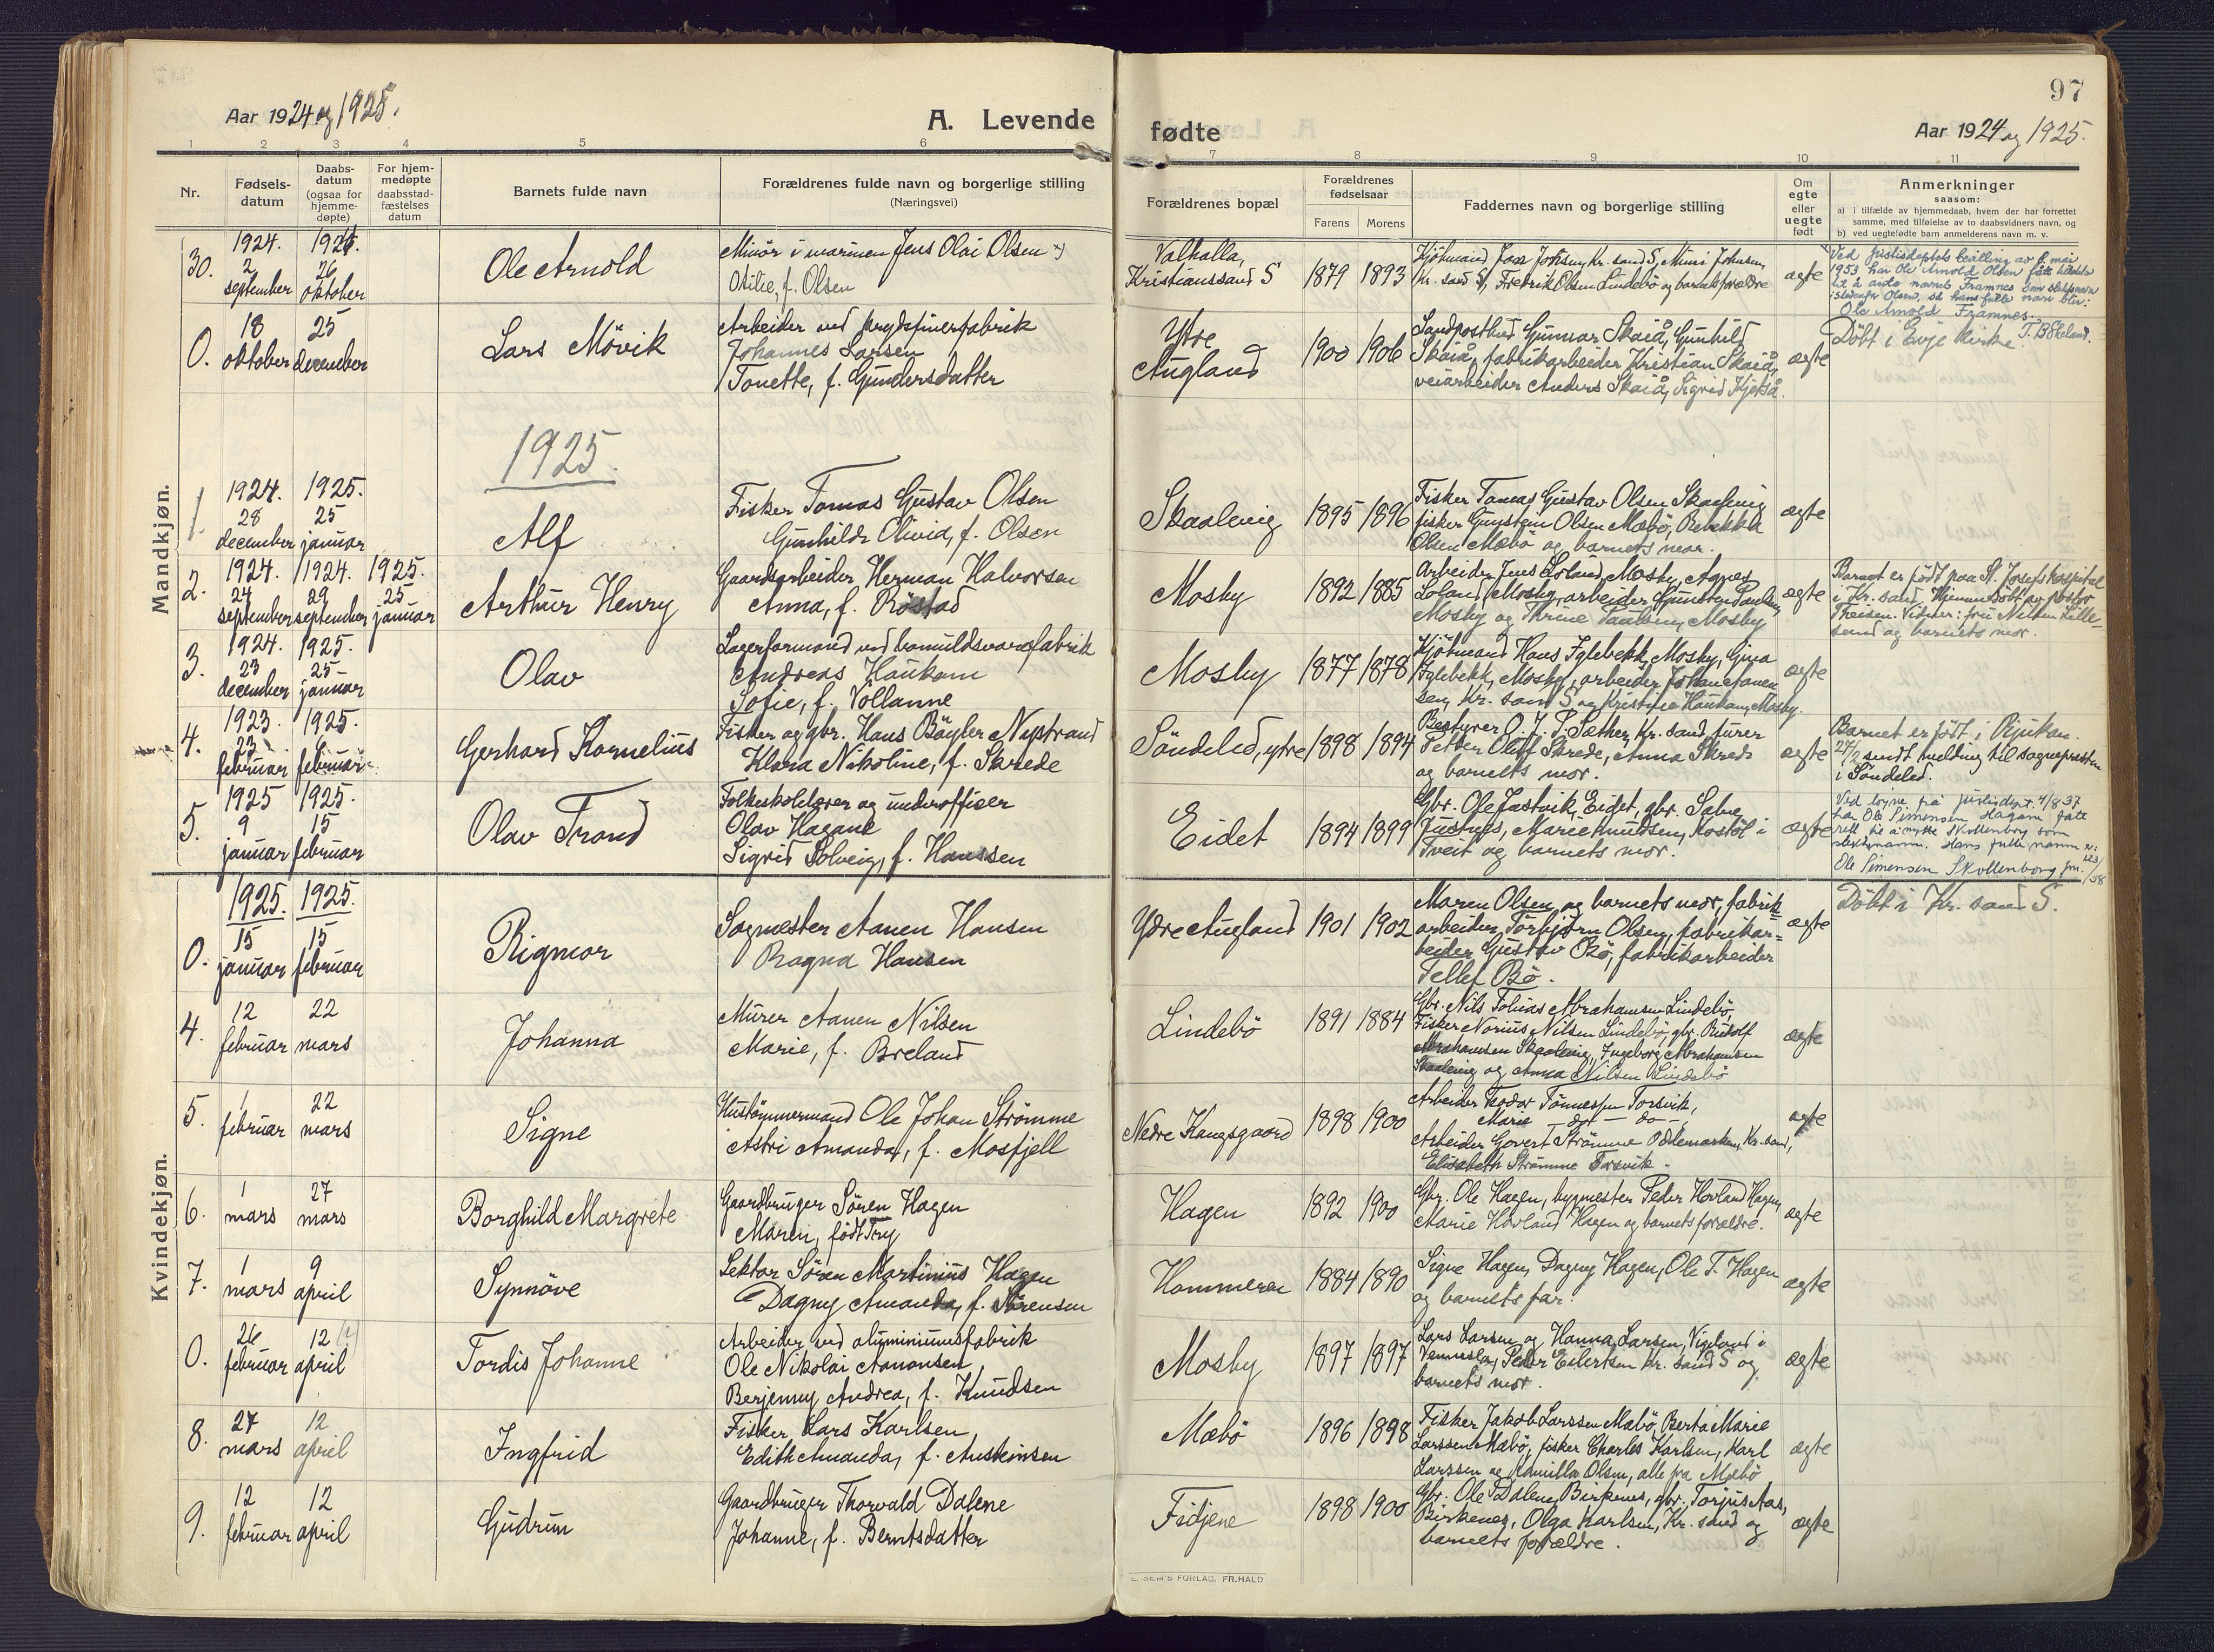 97
Aar 1924 og 1925.
A. Levende
fødte
Aar 1924 og 1925.
1 2 3 4 5 6
7 8 9 10 11
Nr.
Fødsels-
datum
Daabs-
datum
(ogsaa for
hjemme-
døpte)
For hjem-
medøpte
daabsstad-
fæstelses
datum
Barnets fulde navn
Forældrenes fulde navn og borgerlige stilling
(Næringsvei)
Forældrenes bopæl
Forældrenes
fødselsaar
Farens Morens
Faddernes navn og borgerlige stilling
Om
egte
eller
uegte
født
Anmerkninger
saasom:
a) i tilfælde av hjemmedaab, hvem der har forrettet
samme, med tilføielse av to daabsvidners navn, og
b) ved uegtefødte barn anmelderens navn m. v.
Mandkjøn.
30.
1924.
2
september
1924.
26
oktober
Ole Arnold
Minör i marinen Jens Olai Olsen
Otilie, f. Olsen
Valhalla,
Kristianssand S
1879 1893
Kr. sand S, Fredrik Olsen Lindebö og barnets forældre
ægte
Ved Justisdeptets bevilling av 8. mai
1953 har Ole Arnold Olsen fått tillatelse
til å anta navnet Framnes som slektsnavn
istedenfor Olsen, så hans fulle navn blir:
Ole Arnold Framnes.
0.
18
oktober
25
december
Lars Mövik
Arbeider ved krydsfinerfabrik
Johannes Larsen
Tonette, f. Gundersdatter
Ytre
Augland
1900 1906
Landpostbud Gunnar Skaiå, Gunhild
Skaiå, fabrikarbeider Kristian Skaiå,
veiarbeider Anders Skaiå, Sigrid Kjetså.
ægte
Döbt i Evje kirke
1925.
1
1924.
28
december
1925.
25
januar
Alf
Fisker Tomas Gustav Olsen
Gunhilde Olivia, f. Olsen
Skaalevig
1895 1896
Fisker Tomas Gustav Olsen Skaalevig
fisker Gunstein Olsen Mæbö, Rebekka
Olsen Mæbö og barnets mor.
ægte
2.
1924.
24
september
1924.
29
september
1925.
25
januar
Arthur Henry
Gaardsarbeider Herman Halvorsen
Anna, f. Röstad
Mosby
1892 1885
Arbeider Jens Loland, Mosby, Agnes
Loland, Mosby, arbeider Gunsten Paulsen
Mosby og Thrine Paulsen, Mosby
ægte
Barnet er født paa St. Josefs hospital
i Kr. sand. Hjemmedöbt av pastor
Theisen. Vidner: fru Nilsen Lille-
sand og barnets mor.
3.
1924.
23
december
1925.
25
januar
Olav
Lagerformand ved bomuldsvarefabrik
Andreas Haukom
Sofie, f. Vollanne
Mosby
1877 1878
Kjöbmand Hans Iglebekk, Mosby, Gina
Iglebekk, Mosby, arbeider Johan Hansen
sen, Kr. sand S og Kristine Haukom, Mosby
ægte
4.
1923.
23
februar
1925.
februar
Gerhard Kornelius
Fisker og gbr. Hans Böyler Nystrand
Klara Nikoline, f. Skrede
Söndeled, ytre
1898 1894
Bestyrer O. J. P. Sæther, Kr. sand, turer
Petter Oluf Skrede, Anna Skrede
og barnets mor.
ægte
Barnet er født i Rjukan.
27/2 sendt melding til sognepresten
i Söndeled.
5.
1925
9
januar
1925.
15
februar
Olav Trond
Folkeskolelærer og underofficer
Olav Hagane
Sigrid Solveig, f. Hanssen
Eidet
1894 1899
Gbr. Ole Jastvik, Eidet, gbr. Salve
Justnes, Marie Knudsen, Kostöl i
Tveit og barnets mor.
ægte
Ved bgne. frå justisdept. 4/8 37
har Ole Simensen Hagane fått
rett til å nytte Skollenborg som
slektsnamn. Hans fulle namn er:
Ole Simensen Skollenborg
Kvindekjøn.
0.
1925.
15
januar
1925.
15
februar
Rigmor
Sagmester Aanen Hansen
Ragna Hansen
Ydre Augland
1901 1902
Maren Olsen og barnets mor, fabrik-
arbeider Torbjörn Olsen, fabrikar-
beider Gustav Bö, fabrikarbeider
Tellef Bö.
ægte
Döbt i Kr. sand S.
4.
12
februar
22
mars
Johanna
Murer Aanen Nilsen
Marie, f. Breland
Lindebö
1891 1884
Gbr. Nils Tobias Abrahamsen Lindebö,
Fisker Norius Nilsen Lindebö, gbr. Rudolf
Abrahamsen Skaalevig, Ingeborg Abrahamsen
Skaalevig og Anna Nilsen Lindebö
ægte
5.
1
februar
22
mars
Signe
Hustömmermand Ole Johan Strömme
Astri Amanda, f. Mosfjell
Nedre Kongsgaard
1898 1900
Arbeider Teodor Tönnessen Torsvik,
Marie — do —
Arbeider Govert Strömme Oddemarken, Kr. sand,
Elisabeth Strömme Torsvik.
ægte
6.
1
mars
27
mars
Borghild Margrete
Gaardbruger Sören Hagen
Maren, født Try
Hagen
1892 1900
Gbr. Ole Hagen, bygmester Peder Hovland Hagen,
Marie Hovland Hagen og barnets forældre.
ægte
7.
1
mars
9
april
Synnöve
Lektor Sören Martinius Hagen
Dagny Amanda, f. Sörensen
Hommeren
1884 1890
Signe Hagen, Dagny Hagen, Ole T. Hagen
og barnets far.
ægte
0.
26
februar
12
april
Tordis Johanne
Arbeider ved aluminiumsfabrik
Ole Nikolai Aanonsen
Berjenny Andrea, f. Knudsen
Mosby
1897 1897
Lars Larsen og Hanna Larsen, Vigeland i
Vennesla, Peder Eilertsen Kr. sand S og
barnets mor.
ægte
8.
27
mars
12
april
Ingfrid
Fisker Lars Karlsen
Edith Amanda, f. Auskinsen
Mæbö
1896 1898
Fisker Jakob Larssen Mæbö, Berta Marie
Larssen Mæbö, fisker Charles Karlsen, Karl
Larssen og Kamilla Olsen, alle fra Mæbö
ægte
9.
12
februar
12
april
Gudrun
Gaardbruger Thorvald Dalene
Johanne, f. Berntsdatter
Fidjene
1898 1900
Gbr. Ole Dalene, Birkenes, gbr. Torjus Aas,
Birkenes, Olga Karlsen, Kr. sand og
barnets forældre.
ægte
E. SEM'S FORLAG. FR.HALD